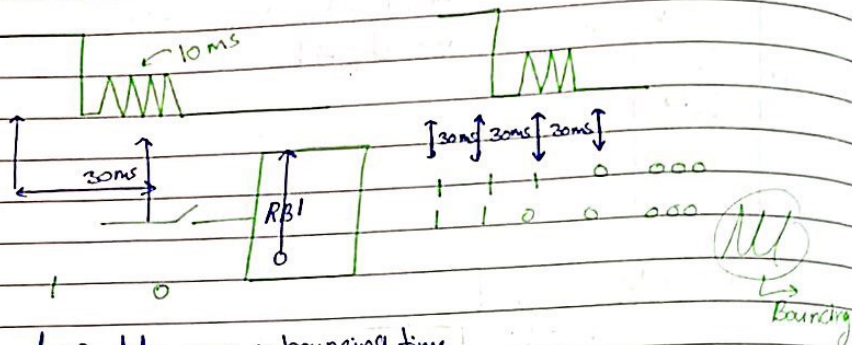 10ms
30ms 30ms 30ms
30ms
1 1 1 0 000
RB1
1 1 0 0 000
1 0
Bouncing
bouncing time